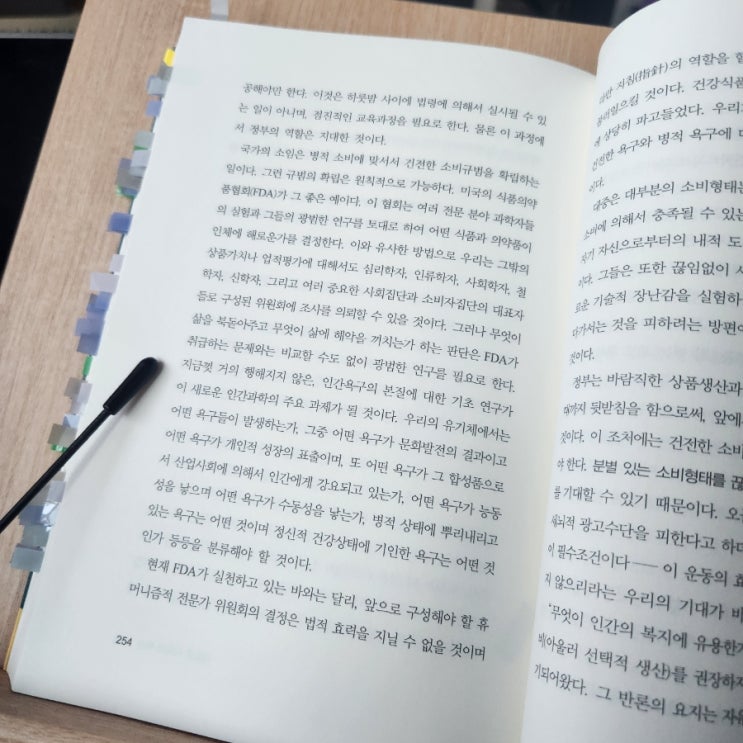 공해야만 한다. 이것은 하룻밤 사이에 법령에 의해서 실시될 수 있
는 일이 아니며, 점진적인 교육과정을 필요로 한다. 물론 이 과정에
서 정부의 역할은 지대한 것이다.
국가의 소임은 병적 소비에 맞서서 건전한 소비규범을 확립하는
일이다. 그런 규범의 확립은 원칙적으로 가능하다. 미국의 식품의약
품협회(FDA)가 그 좋은 예이다. 이 협회는 여러 전문 분야 과학자들
의 실험과 그들의 광범한 연구를 토대로 하여 어떤 식품과 의약품이
인체에 해로운가를 결정한다. 이와 유사한 방법으로 우리는 그밖의
상품가치나 업적평가에 대해서도 심리학자, 인류학자, 사회학자, 철
학자, 신학자, 그리고 여러 중요한 사회집단과 소비자집단의 대표자
들로 구성된 위원회에 조사를 의뢰할 수 있을 것이다. 그러나 무엇이
삶을 북돋아주고 무엇이 삶에 해악을 끼치는가 하는 판단은 FDA가
취급하는 문제와는 비교할 수도 없이 광범한 연구를 필요로 한다.
지금껏 거의 행해지지 않은, 인간욕구의 본질에 대한 기초 연구가
이 새로운 인간과학의 주요 과제가 될 것이다. 우리의 유기체에서는
어떤 욕구들이 발생하는가, 그중 어떤 욕구가 문화발전의 결과이고
어떤 욕구가 개인적 성장의 표출이며, 또 어떤 욕구가 그 합성품으로
서 산업사회에 의해서 인간에게 강요되고 있는가, 어떤 욕구가 능동
성을 낳으며 어떤 욕구가 수동성을 낳는가, 병적 상태에 뿌리내리고
있는 욕구는 어떤 것이며 정신적 건강상태에 기인한 욕구는 어떤 것
인가 등등을 분류해야 할 것이다.
현재 FDA가 실천하고 있는 바와는 달리, 앞으로 구성해야 할 휴
머니즘적 전문가 위원회의 결정은 법적 효력을 지닐 수 없을 것이며
254
지침(指針)의 역할을 할
불러일으킬 것이다. 건강식품
에 상당히 파고들었다. 우리
건전한 욕구와 병적 욕구에 대
이다.
대중은 대부분의 소비형태는
소비에 의해서 충족될 수 있는
자기 자신으로부터의 내적 도
이다. 그들은 또한 끊임없이 새
로운 기술적 장난감을 실험하
다가서는 것을 피하려는 방편에
것이다.
정부는 바람직한 상품생산과
때까지 뒷받침을 함으로써, 앞에
것이다. 이 조치에는 건전한 소비
야 한다. 분별 있는 소비형태를 끊
를 기대할 수 있기 때문이다. 오
세뇌적 광고수단을 피한다고 하더
이 필수조건이다 — 이 운동의 효
지 않으리라는 우리의 기대가 비
'무엇이 인간의 복지에 유용한가
비(아울러 선택적 생산)를 권장하자
기되어왔다. 그 반론의 요지는 자유